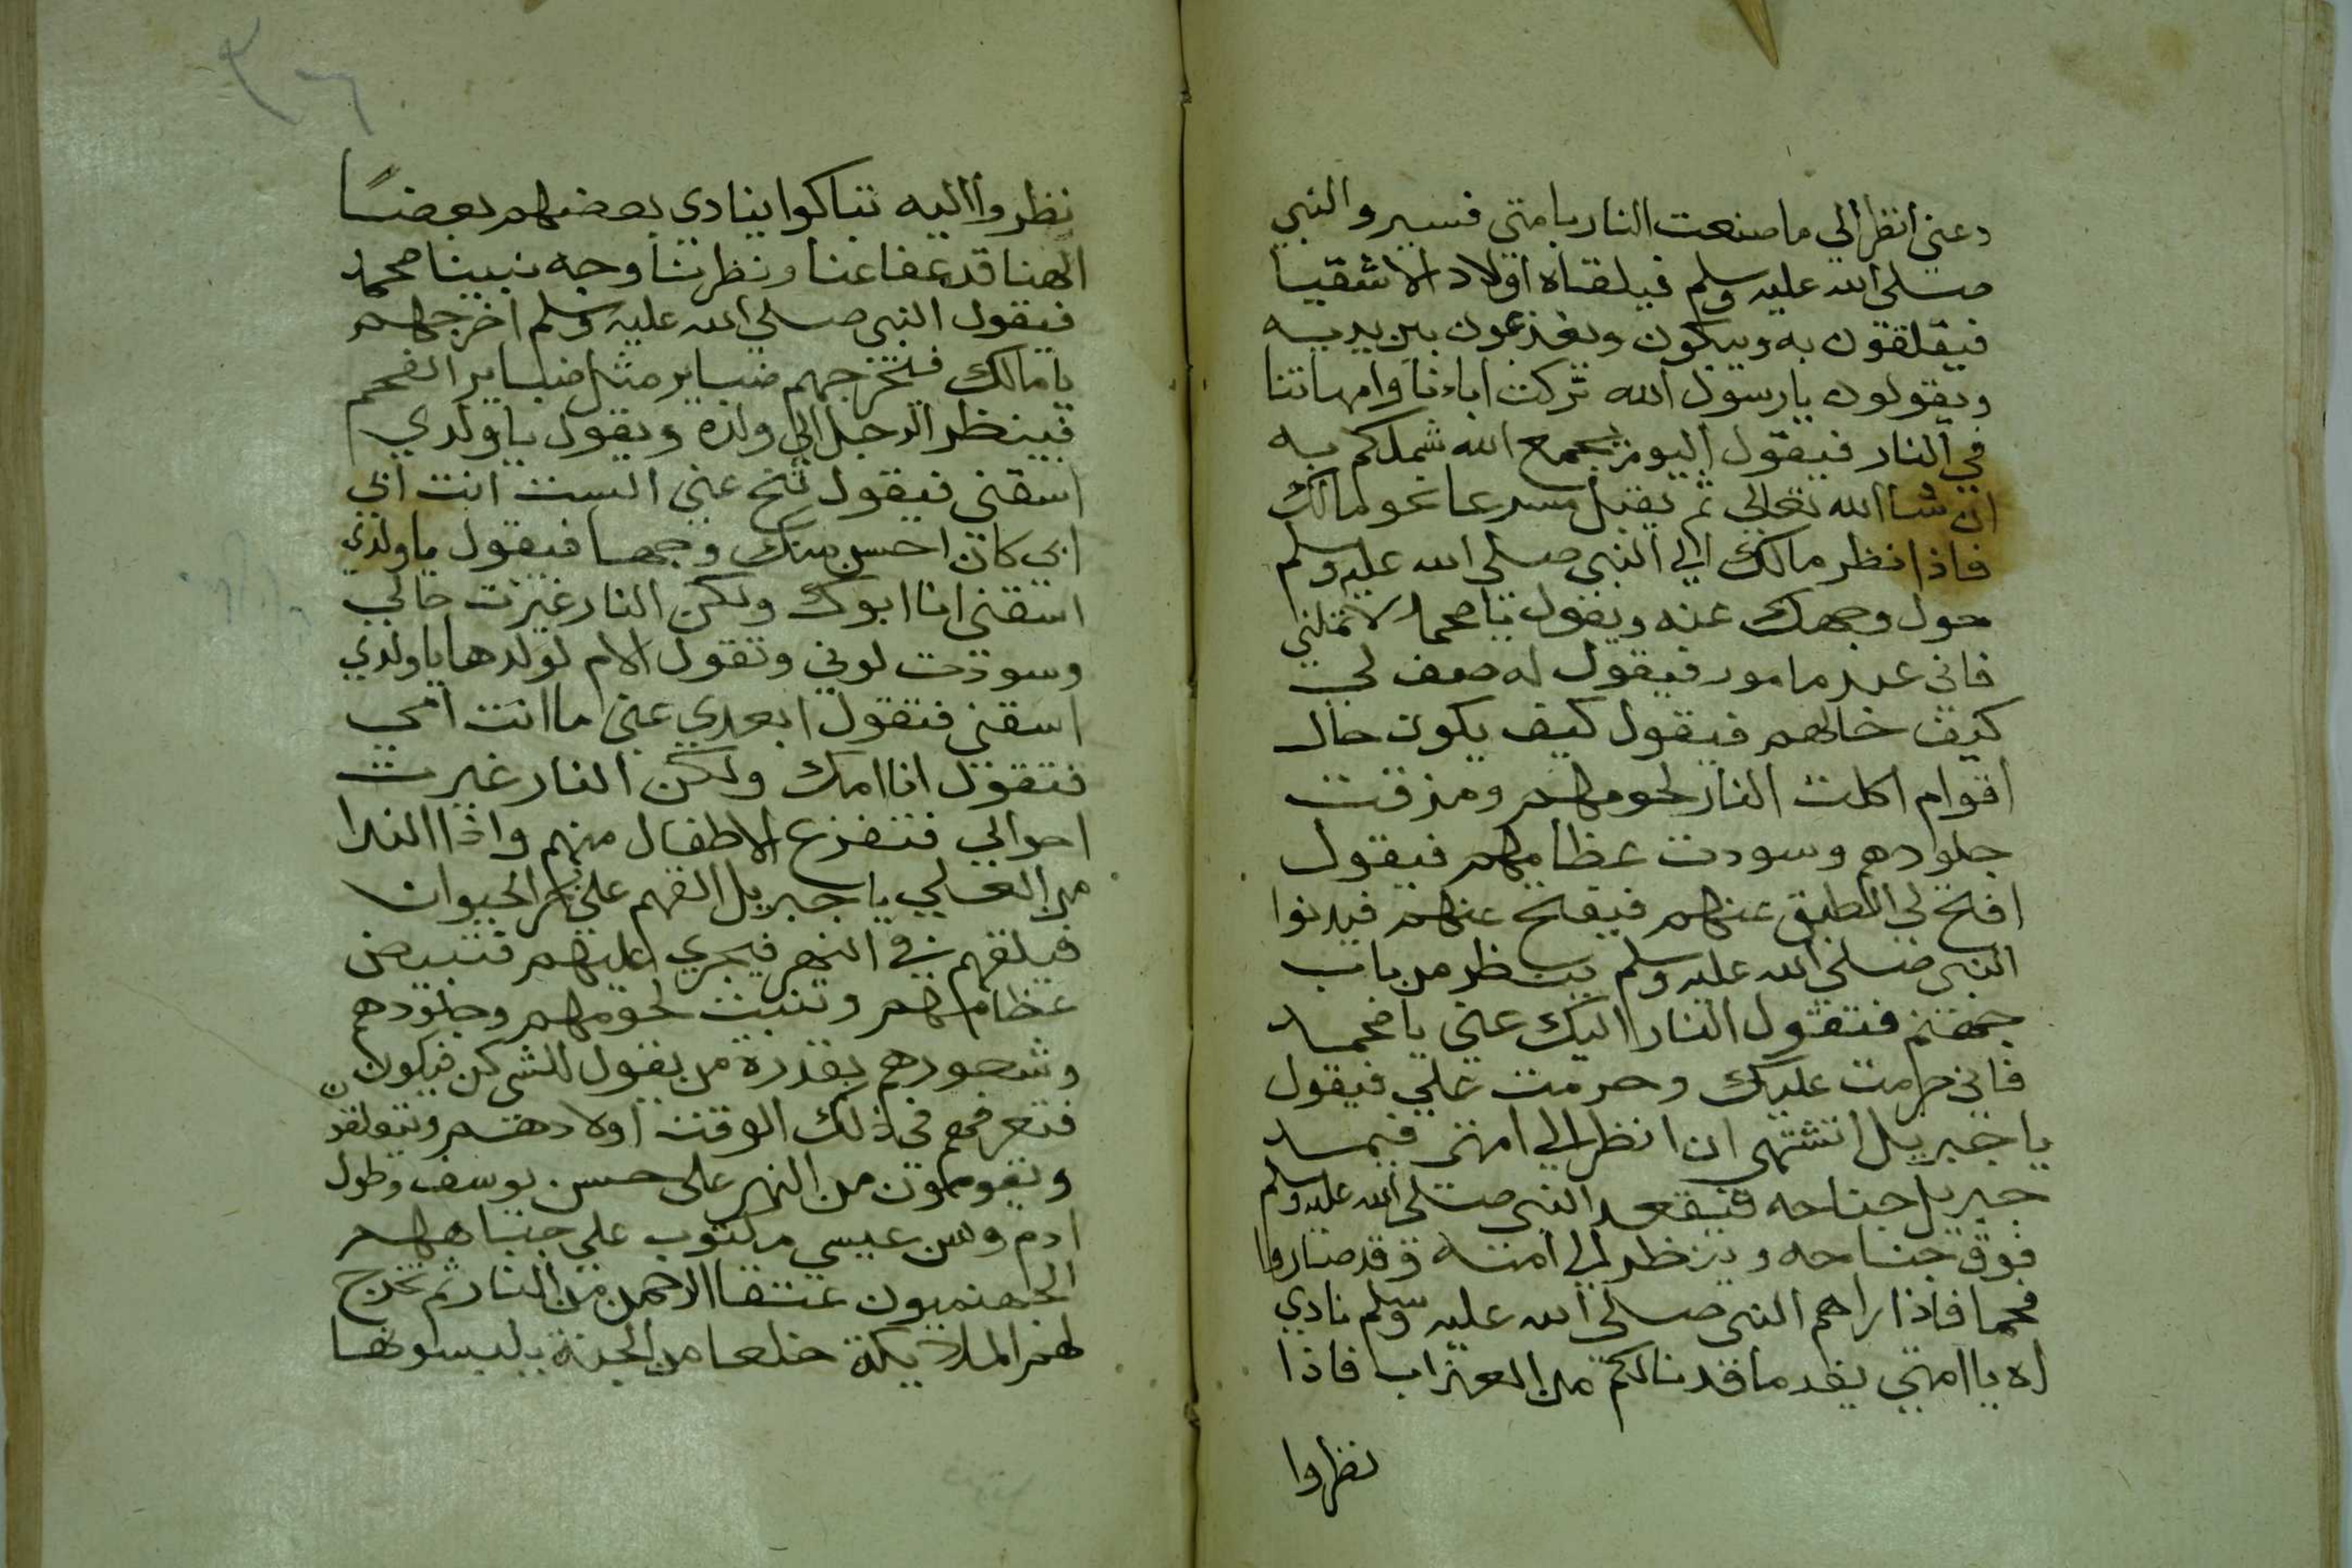 دعني أنظر الي ما صنعت النار بامتي فسير والنبي
صلي الله عليه وسلم فيلقاه اولاد الاشقيا
فيقلقون به ويبكون ويفزعون بين يديه
ويقولون يا رسول الله تركت اباءنا وامهاتنا
في النار فيقول اليوم يجمع الله شملكم به
ان شا الله تعالي ثم يقبل مسرعا نحو مالك
فاذا نظر مالك الي النبي صلي الله عليه وسلم
حول وجهك عنه ويقول يا محمد لا تملني
فاني عبد مامور فيقول له صف لي
كيف حالهم فيقول كيف يكون حال
اقوام اكلت النار لحومهم ومزقت
جلودهم وسودت عظامهم فيقول
افتح لي الطبق عنهم فيفتح عنهم فيدنوا
النبي صلي الله عليه وسلم ينظر من باب
جهنم فتقول النار اليك عني يا محمد
فاني حرمت عليك وحرمت علي فيقول
يا جبريل اتشتهي ان انظر الي امتي فيمد
جبريل جناحه فيقعد النبي صلي الله عليه وسلم
فوق جناحه وينظر الي امته وقد صاروا
فحما فاذا راهم النبي صلي الله عليه وسلم نادي
اه يا امتي يقد ما قد نالكم من العذاب فاذا
نظروا
نظروا اليه تباكوا ينادي بعضهم بعضا
الهنا قد عفا عنا ونظرنا وجه نبينا محمد
فيقول النبي صلي الله عليه وسلم اخرجهم
يا مالك فيخرجهم ضباير مثل ضباير الفحم
فينظر الرجل الي ولده ويقول يا ولدي
اسقني فيقول تنح عني الست انت ابي
ابي كان احسن منك وجها فيقول يا ولدي
اسقني انا ابوك ولكن النار غيرت حالي
وسودت لوني وتقول الام لولدها يا ولدي
اسقني فتقول ابعدي عني ما انت امي
فتقول انا امك ولكن النار غيرت
احوالي فتفزع الاطفال منهم واذا الندا
من العلي يا جبريل القهم علي نهر الحيوان
فيلقهم في النهر فيجري عليهم فتبيض
عظامهم وتنبت لحومهم وجلودهم
وشعورهم بقدرة من يقول للشي كن فيكون
فتعرفهم في ذلك الوقت اولادهم
ويقومون من النهر علي حسن يوسف وطول
ادم وسن عيسي مكتوب علي جباههم
الجهنميون عتقا الرحمن من النار ثم تخرج
لهم الملايكة خلعا من الجنة يلبسونها